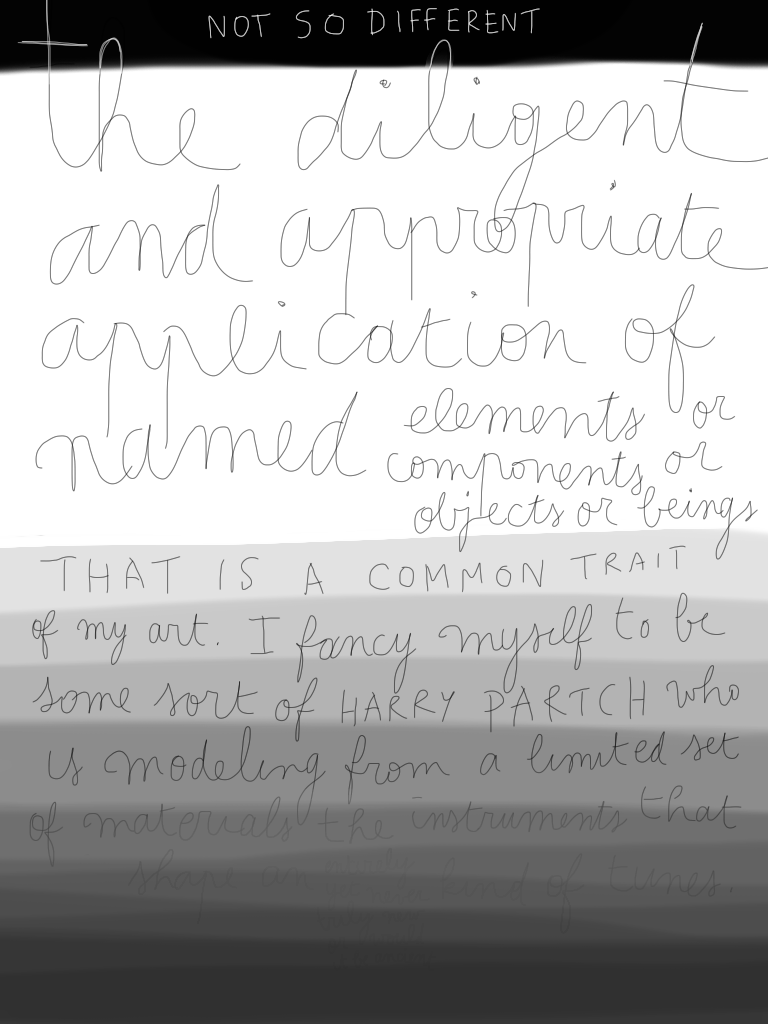 NOT SO DIFFERENT
the diligent
and appropriate
application of
named elements or
components or
objects or beings
THAT IS A COMMON TRAIT
of my art. I fancy myself to be
some sort of HARRY PARTCH who
is modeling from a limited set
of materials the instruments that
shape kind of tunes.